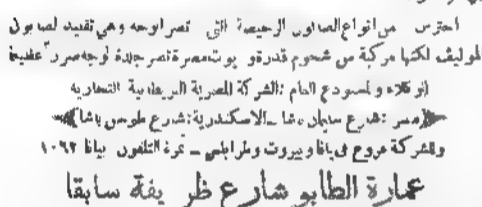 احترس من انواع الصابون الرخيصة التي تضر الوجه وهي تقليد لصابون
الموليف لكنها مركبة من شحوم قذرة و مضرة تضر جلدة لوجه ضرر عظيما
الوكلاء و المستودع العام : الشركة المصرية البريطانية التجارية
مصر : شارع سليمان باشا ـ الاسكندرية : شارع طوسن باشا
وللشركة فروع في يافا وبيروت وطرابلس ـ نمرة التلفون بيافا ١٠٦٢
عمارة الطابو شارع ظريفة سابقا